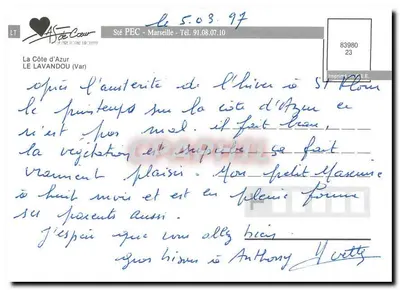 le 5.03.97
As de Cœur
Sté PEC - Marseille - Tél. 91.08.07.10
La Côte d'Azur
LE LAVANDOU (Var)
83980
23
après l'austérité de l'hiver à St Flour
le printemps sur la côte d'Azur ce
n'est pas mal. il fait beau,
la végétation est superbe se fait
vraiment plaisir. Mon petit Maxence
a huit mois et est en pleine forme
ses parents aussi.
J'espère que vous allez bien
gros bisous à Anthony Yvette